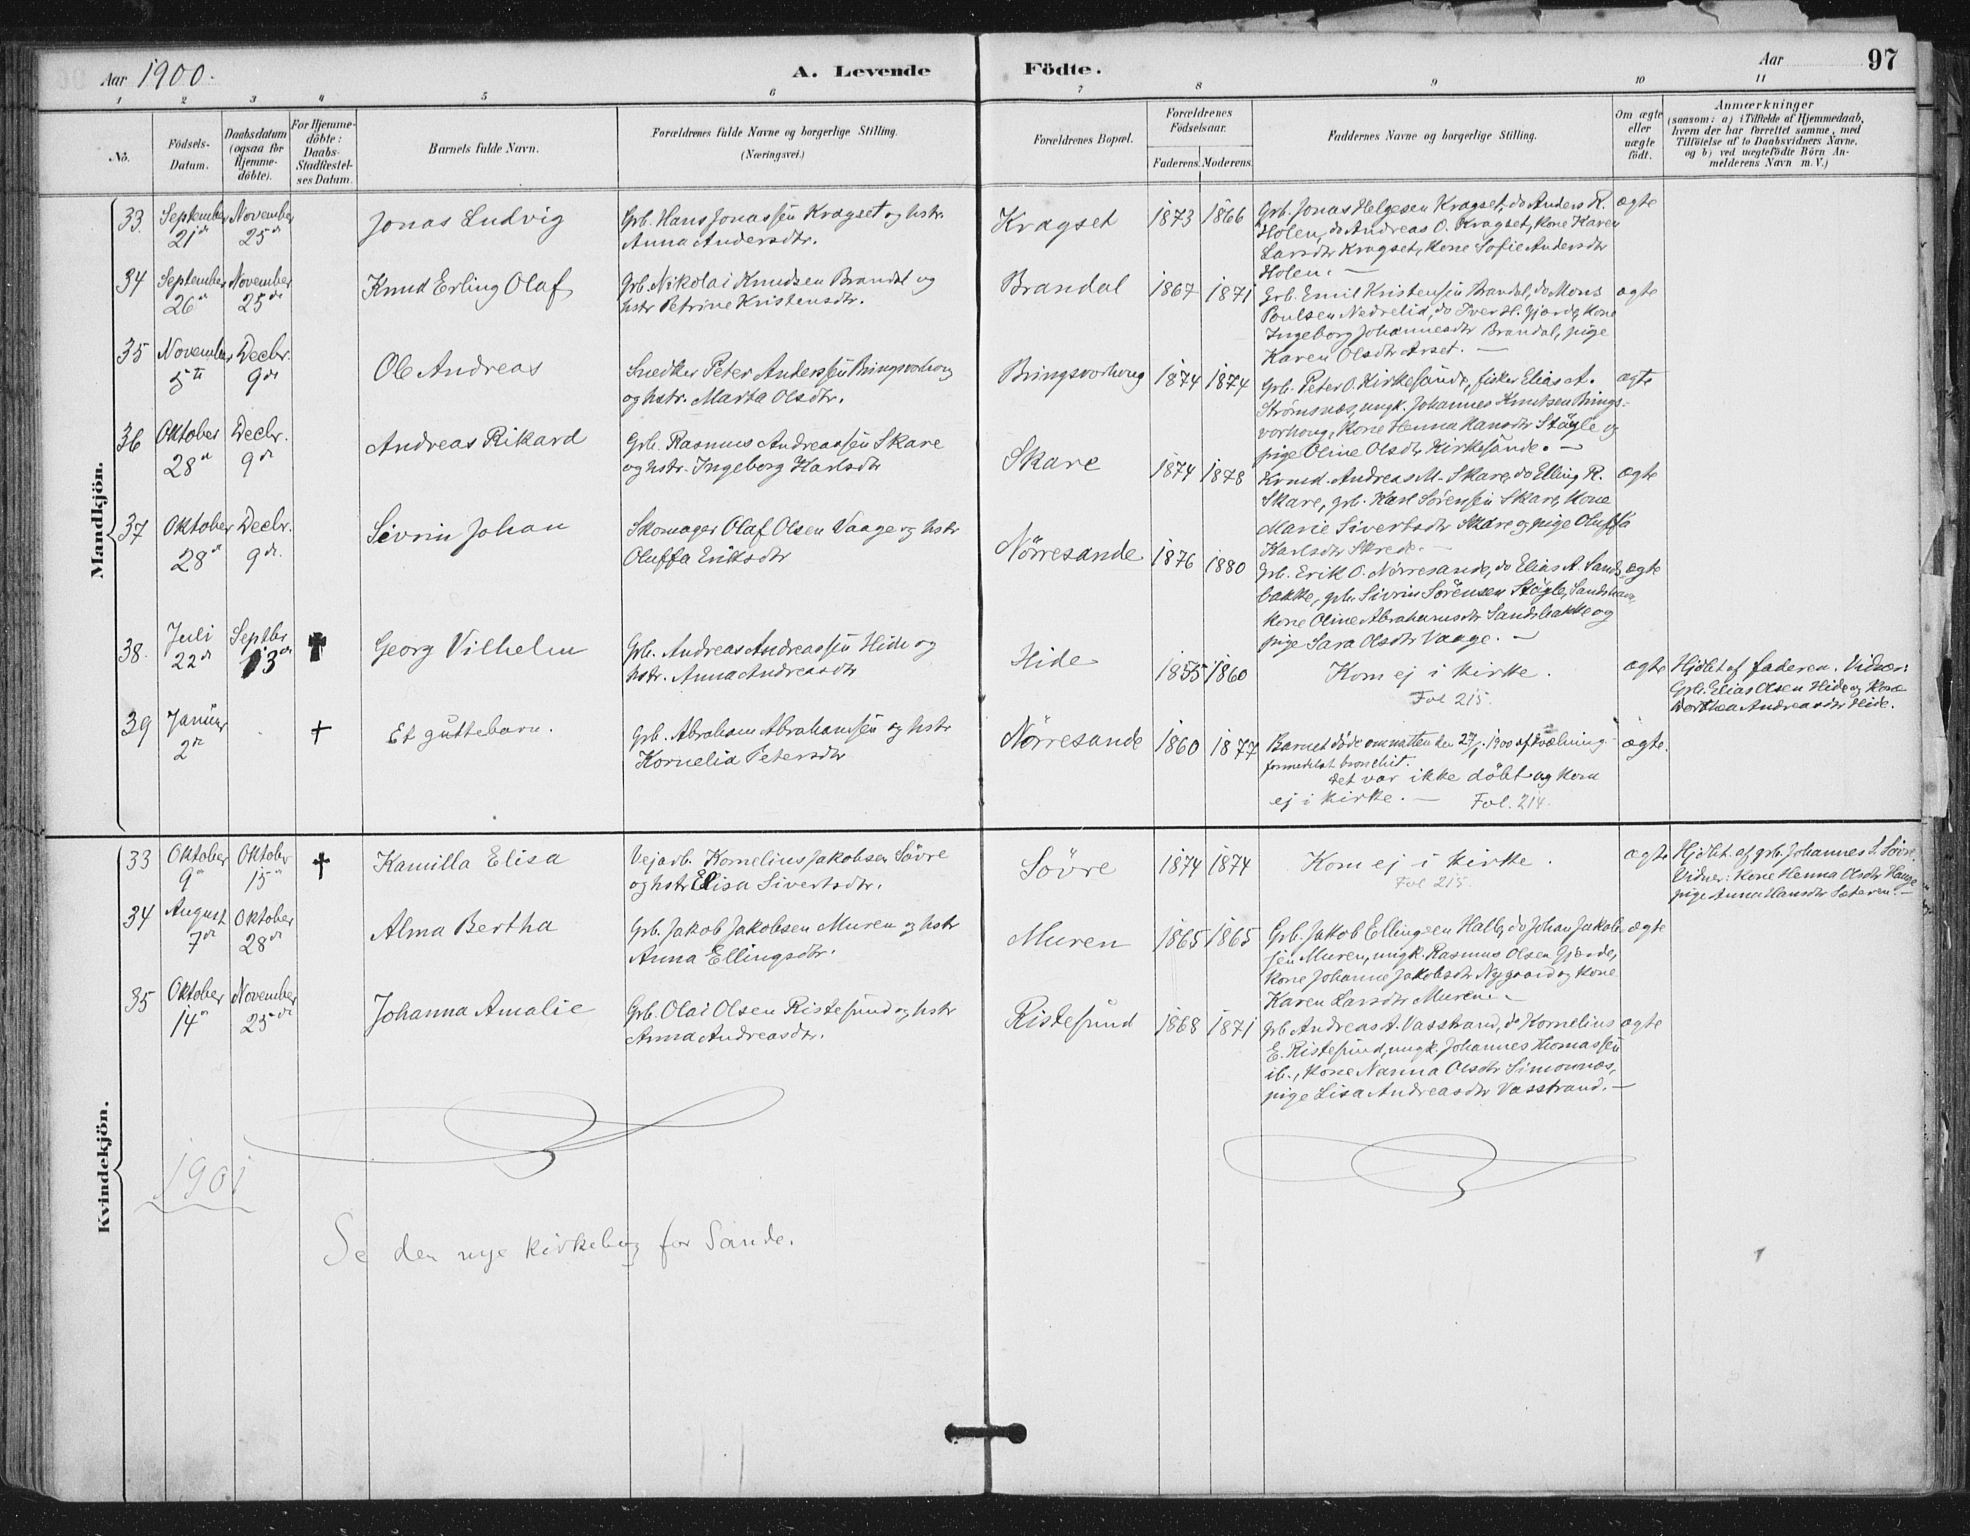 Aar 1900.
A. Levende
Födte.
Aar
97
1 2 3 4 5 6 7 8 9 10 11
No.
Födsels-
Datum.
Daabsdatum
(ogsaa for
Hjemme-
döbte).
For Hjemme-
döbte:
Daabs-
Stadfæstel-
ses Datum.
Barnets fulde Navn.
Forældrenes fulde Navne og borgerlige Stilling.
(Næringsvei.)
Forældrenes Bopæl.
Forældrenes
Födselsaar.
Faderens. Moderens.
Faddernes Navne og borgerlige Stilling.
Om ægte
eller
uægte
födt.
Anmærkninger
(saasom: a) i Tilfælde af Hjemmedaab,
hvem der har forrettet samme, med
Tilföielse af to Daabsvidners Navne,
og b) ved uægtefödte Börn An-
melderens Navn m. V.)
Mandkjön.
33. September 21de November 25de Jonas Ludvig
Grb. Hans Jonassen Kragset og hstr.
Anna Andersdtr.
Kragset 1873 1866
Grb. Jonas Helgesen Kragset, do Anders R.
Holen, do Andreas O. Kragset, Kone Karen
Larsdtr Kragset, Kone Sofie Andersdtr
Holen. —
ægte
34 September 26de November 25de Knud Erling Olaf
Grb. Nikolai Knudsen Brandal og
hstr Petrine Kristensdtr.
Brandal 1867 1871
Grb. Emil Kristensen Brandal, do Mons
Poulsen Nedrelid, do Iver H. Gjærde, Kone
Ingeborg Johannesdtr Brandal, pige
Karen Olsdtr Arset. —
ægte
35 November 5te Decbr. 9de Ole Andreas
Snedker Peter Anderssen Bringsvorhoug
og hstr. Marta Olsdtr.
Bringsvorhoug 1874 1874
Grb. Peter O. Kirkesande, fisker Elias A.
Strömsnæs, ungk. Johannes Knutsen Brings-
vorhoug, Kone Henna Hansdtr Stöyle og
pige Oline Olsdtr Kirkesande. —
ægte
36 Oktober 28de Decbr. 9de Andreas Rikard
Grb. Rasmus Andreassen Skare
og hstr. Ingeborg Karlsdtr
Skare 1874 1878
Krmd. Andreas M. Skare, do Elling R.
Skare, grb. Karl Sörensen Skare, Kone
Marie Sivertsdtr Skare og pige Oluffa
Karlsdtr Skrede. —
ægte
37 Oktober 28de Decbr. 9de. Sivrin Johan
Skomager Olaf Olsen Vaage og hstr
Oluffa Eriksdtr
Nörresande 1876 1880
Grb. Erik O. Nörresande, do Elias A. Sands-
bakke, grb. Sivrin Sörensen Stöyle, Sandshavn,
Kone Oline Abrahamsdtr Sandsbakke og
pige Sara Olsdtr Vaage. —
ægte
38. Juli 22de Septbr 13de ✝ Georg Vilhelm
Grb. Andreas Andreassen Hide og
hstr. Anna Andreasdtr
Hide 1855 1860
Kom ej i kirke.
Fol 215.
ægte
Hjdbt af faderen. Vidner:
Grb. Elias Olsen Hide og Kone
Dorthea Andreasdtr Hide.
39 Januar 2de + Et guttebarn.
Grb. Abraham Abrahamsen og hstr
Kornelia Petersdtr
Nörresande 1860 1877
Barnet döde om natten den 27/1. 1900 af kvælning
formedelst bronchit.
Det var ikke döbt og kom
ej i kirke. — Fol. 214.
ægte.
Kvindekjön.
33 Oktober 9de Oktober 15de ✝ Kamilla Elisa
Vejarb. Kornelius Jakobsen Sövre
og hstr Elisa Sivertsdtr.
Sövre 1874 1874
Kom ej i kirke.
Fol 215.
ægte
Hjdbt. af grb. Johannes S. Sövre.
Vidner: Kone Henna Olsdtr Hauge
pige Anna Hansdtr Sæteren. —
34 August 7de Oktober 28de Alma Bertha
Grb. Jakob Jakobsen Muren og hstr
Anna Ellingsdtr.
Muren 1865 1865
Grb. Jakob Ellingsen Hallo, do Johan Jakob-
sen Muren, ungk. Rasmus Olsen Gjærde,
Kone Johanne Jakobsdtr Nygaard og Kone
Karen Larsdtr Muren. —
ægte
35 Oktober 14de November 25de Johanna Amalie
Grb. Olai Olsen Ristesund og hstr
Anna Andreasdtr.
Ristesund 1868 1871
Grb Andreas A. Vasstrand, do Kornelius
E. Ristesund, ungk. Johannes Thomassen
ib., Kone Nanna Olsdtr Simonnæs,
pige Lisa Andreasdtr Vasstrand. —
ægte
1901
Se den nye kirkebog for Sande.